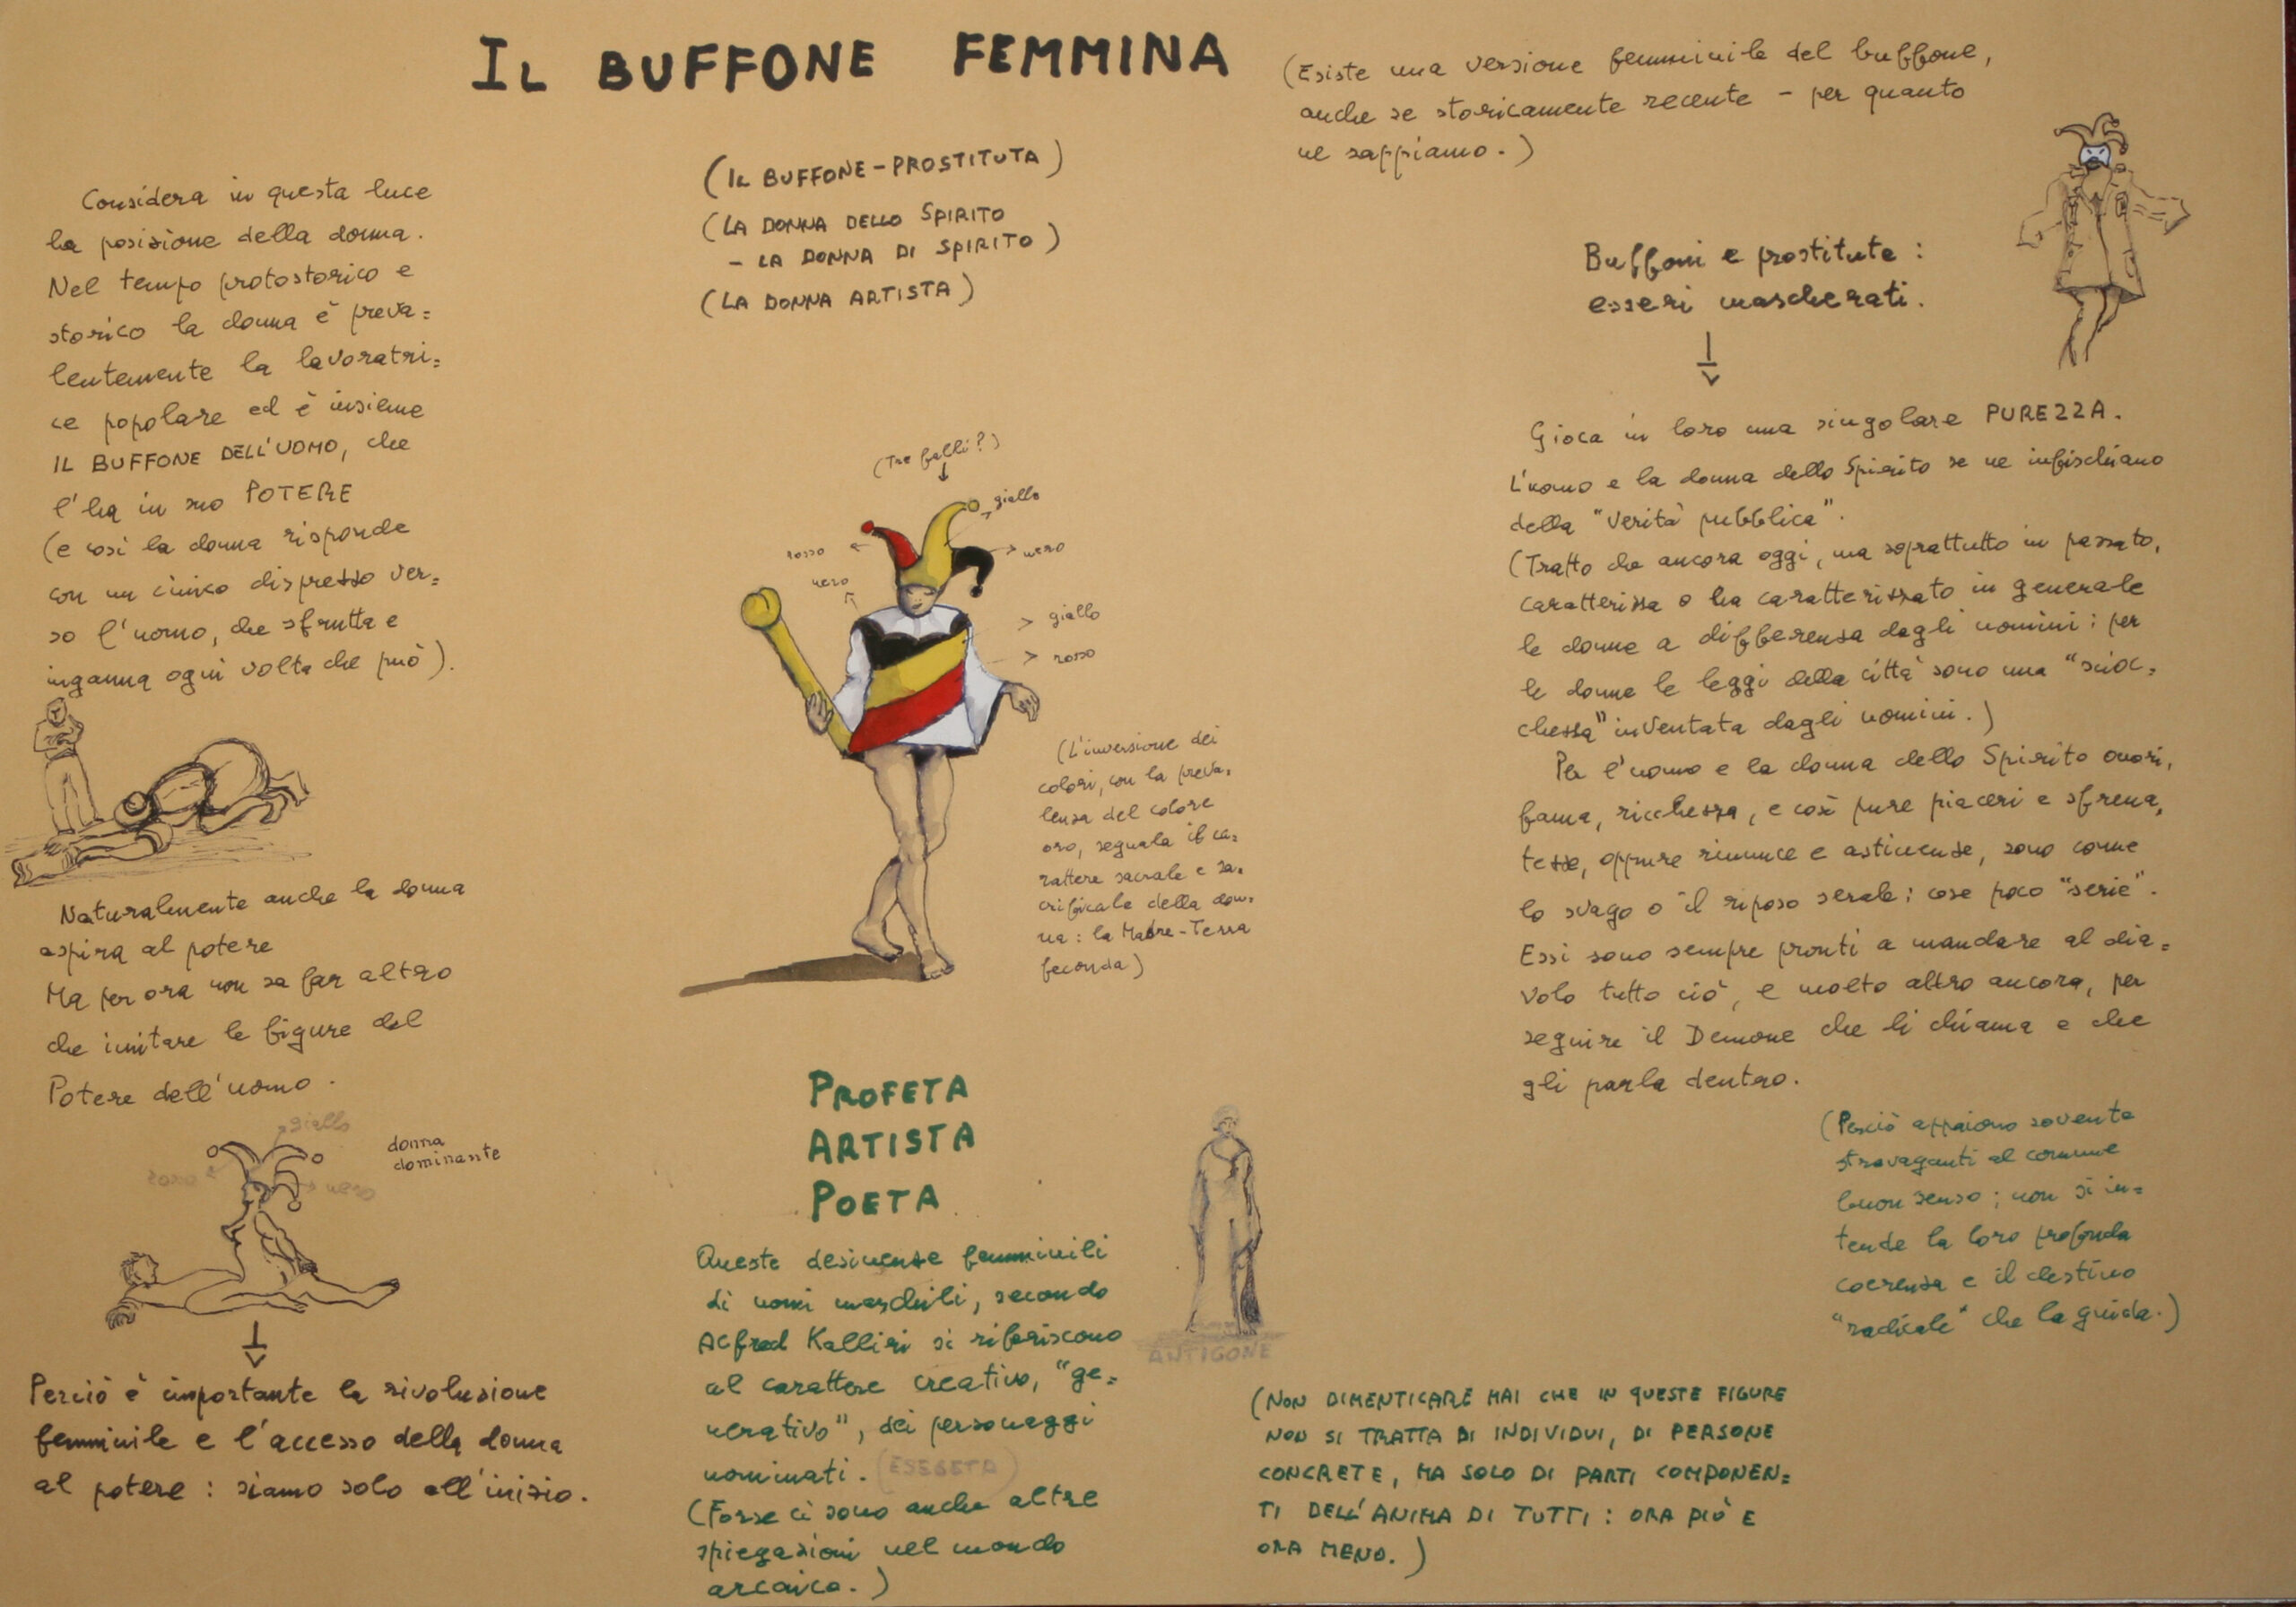 IL BUFFONE FEMMINA
(Esiste una versione femminile del buffone,
anche se storicamente recente - per quanto
ne sappiamo.)
Considera in questa luce
la posizione della donna.
Nel tempo protostorico e
storico la donna è preva=
lentemente la lavoratri=
ce popolare ed è insieme
IL BUFFONE DELL'UOMO, che
l'ha in suo POTERE
(e così la donna risponde
con un cinico disprezzo ver=
so l'uomo, che sfrutta e
inganna ogni volta che può).
Naturalmente anche la donna
aspira al potere
Ma per ora non sa far altro
che imitare le figure del
Potere dell'uomo.
giallo
rosso
nero
donna
dominante
Perciò è importante la rivoluzione
femminile e l'accesso della donna
al potere: siamo solo all'inizio.
(IL BUFFONE-PROSTITUTA)
(LA DONNA DELLO SPIRITO
- LA DONNA DI SPIRITO)
(LA DONNA ARTISTA)
(Tre falli?)
giallo
rosso
nero
nero
giallo
rosso
(L'inversione dei
colori, con la preva=
lenza del colore
oro, segnala il ca=
rattere sacrale e sa=
crificale della don=
na: la Madre-Terra
feconda)
PROFETA
ARTISTA
POETA
Queste desinenze femminili
di nomi maschili, secondo
Alfred Kallir si riferiscono
al carattere creativo, "ge=
nerativo", dei personaggi
nominati. (ESEGETA)
(Forse ci sono anche altre
spiegazioni nel mondo
arcaico.)
ANTIGONE
Buffoni e prostitute:
esseri mascherati.
Gioca in loro una singolare PUREZZA.
L'uomo e la donna dello Spirito se ne infischiano
della "Verità pubblica".
(Tratto che ancora oggi, ma soprattutto in passato,
caratterizza o ha caratterizzato in generale
le donne a differenza degli uomini: per
le donne le leggi della città sono una "scioc=
chezza" inventata dagli uomini.)
Per l'uomo e la donna dello Spirito onori,
fama, ricchezza, e così pure piaceri e sfrena=
tezze, oppure rinunce e astinenze, sono come
lo svago o il riposo serale: cose poco "serie".
Essi sono sempre pronti a mandare al dia=
volo tutto ciò, e molto altro ancora, per
seguire il Demone che li chiama e che
gli parla dentro.
(Perciò appaiono sovente
stravaganti al comune
buon senso; non si in=
tende la loro profonda
coerenza e il destino
"radicale" che la guida.)
(NON DIMENTICARE MAI CHE IN QUESTE FIGURE
NON SI TRATTA DI INDIVIDUI, DI PERSONE
CONCRETE, MA SOLO DI PARTI COMPONEN=
TI DELL'ANIMA DI TUTTI: ORA PIÙ E
ORA MENO.)